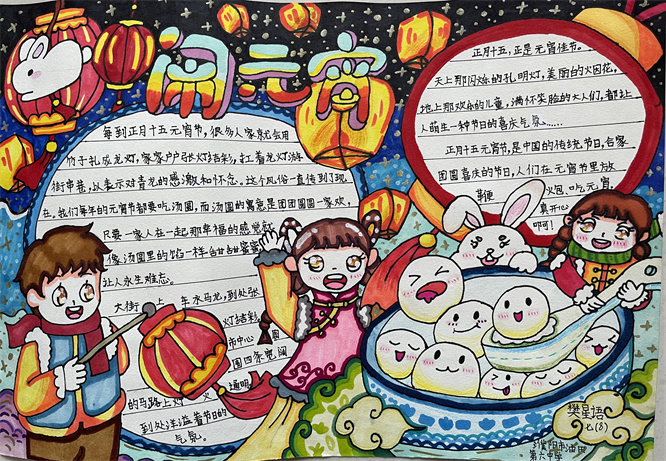 闹元宵
每到正月十五元宵节，很多人家就会用
竹子扎成龙灯，家家户户张灯结彩，扛着龙灯游
街串巷，以表示对青龙的感激和怀念。这个风俗一直传到了现
在，我们每年的元宵节都要吃汤圆，而汤圆的寓意是团团圆圆一家欢，
只要一家人在一起那幸福的感觉就
像汤圆里的馅一样甜甜蜜蜜
让人永生难忘。
大街上 车水马龙，到处张
灯结彩
市中心
围四条宽阔
的马路上灯火通明
到处洋溢着节日的
气氛。
正月十五，正是元宵佳节。
天上那闪烁的孔明灯，美丽的火因花，
地上那欢乐的儿童，满怀笑脸的大人们，都让
人萌生一种节日的喜庆气氛……
正月十五元宵节，是中国的传统节日，合家
团圆喜庆的节日，人们在元宵里放
火包、吃元宵
真开心
啊！
樊星语
七(8)
油田
第六中学